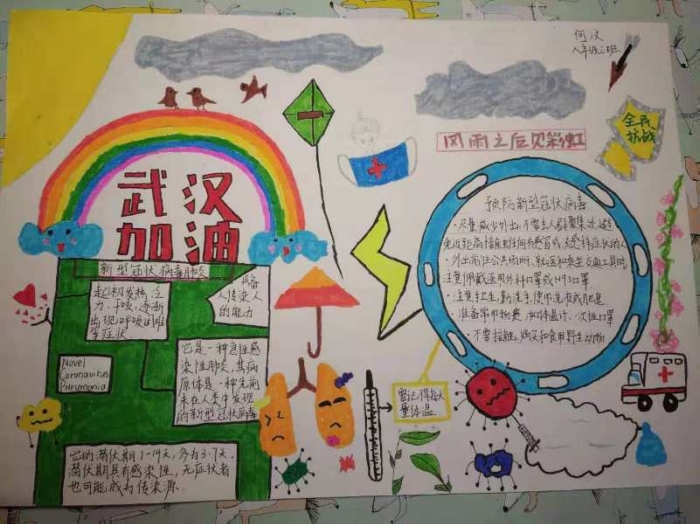 何汶
八年级二班
全民
抗战
风雨之后见彩虹
武汉
加油
新型冠状病毒肺炎
起初发热,乏
力,干咳,逐渐
出现呼吸困难
等症状
具备
人传染人
的能力
Novel
Coronavirus
Pneumonia
它是一种急性感
染性肺炎,其病
原体是一种先前
未在人类中发现
的新型冠状病毒
它的潜伏期1-14天,多为3-7天,
潜伏期具有感染性,无症状者
也可能成为传染源.
预防新型冠状病毒
·尽量减少外出,不要去人群聚集之处,避
免近距离接触
·外出前往公共场所,就医和乘坐交通工具时,
注意佩戴医用外科口罩或N95口罩
·注意卫生,勤洗手,使用洗液或肥皂.
·准备常用物资,如体温计、一次性口罩
·不要接触,购买和食用野生动物
要记得每天
量体温